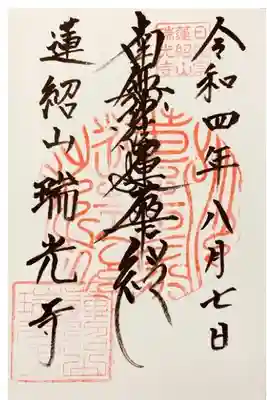 令和四年八月七日
南無妙法蓮華経
蓮紹山瑞光寺